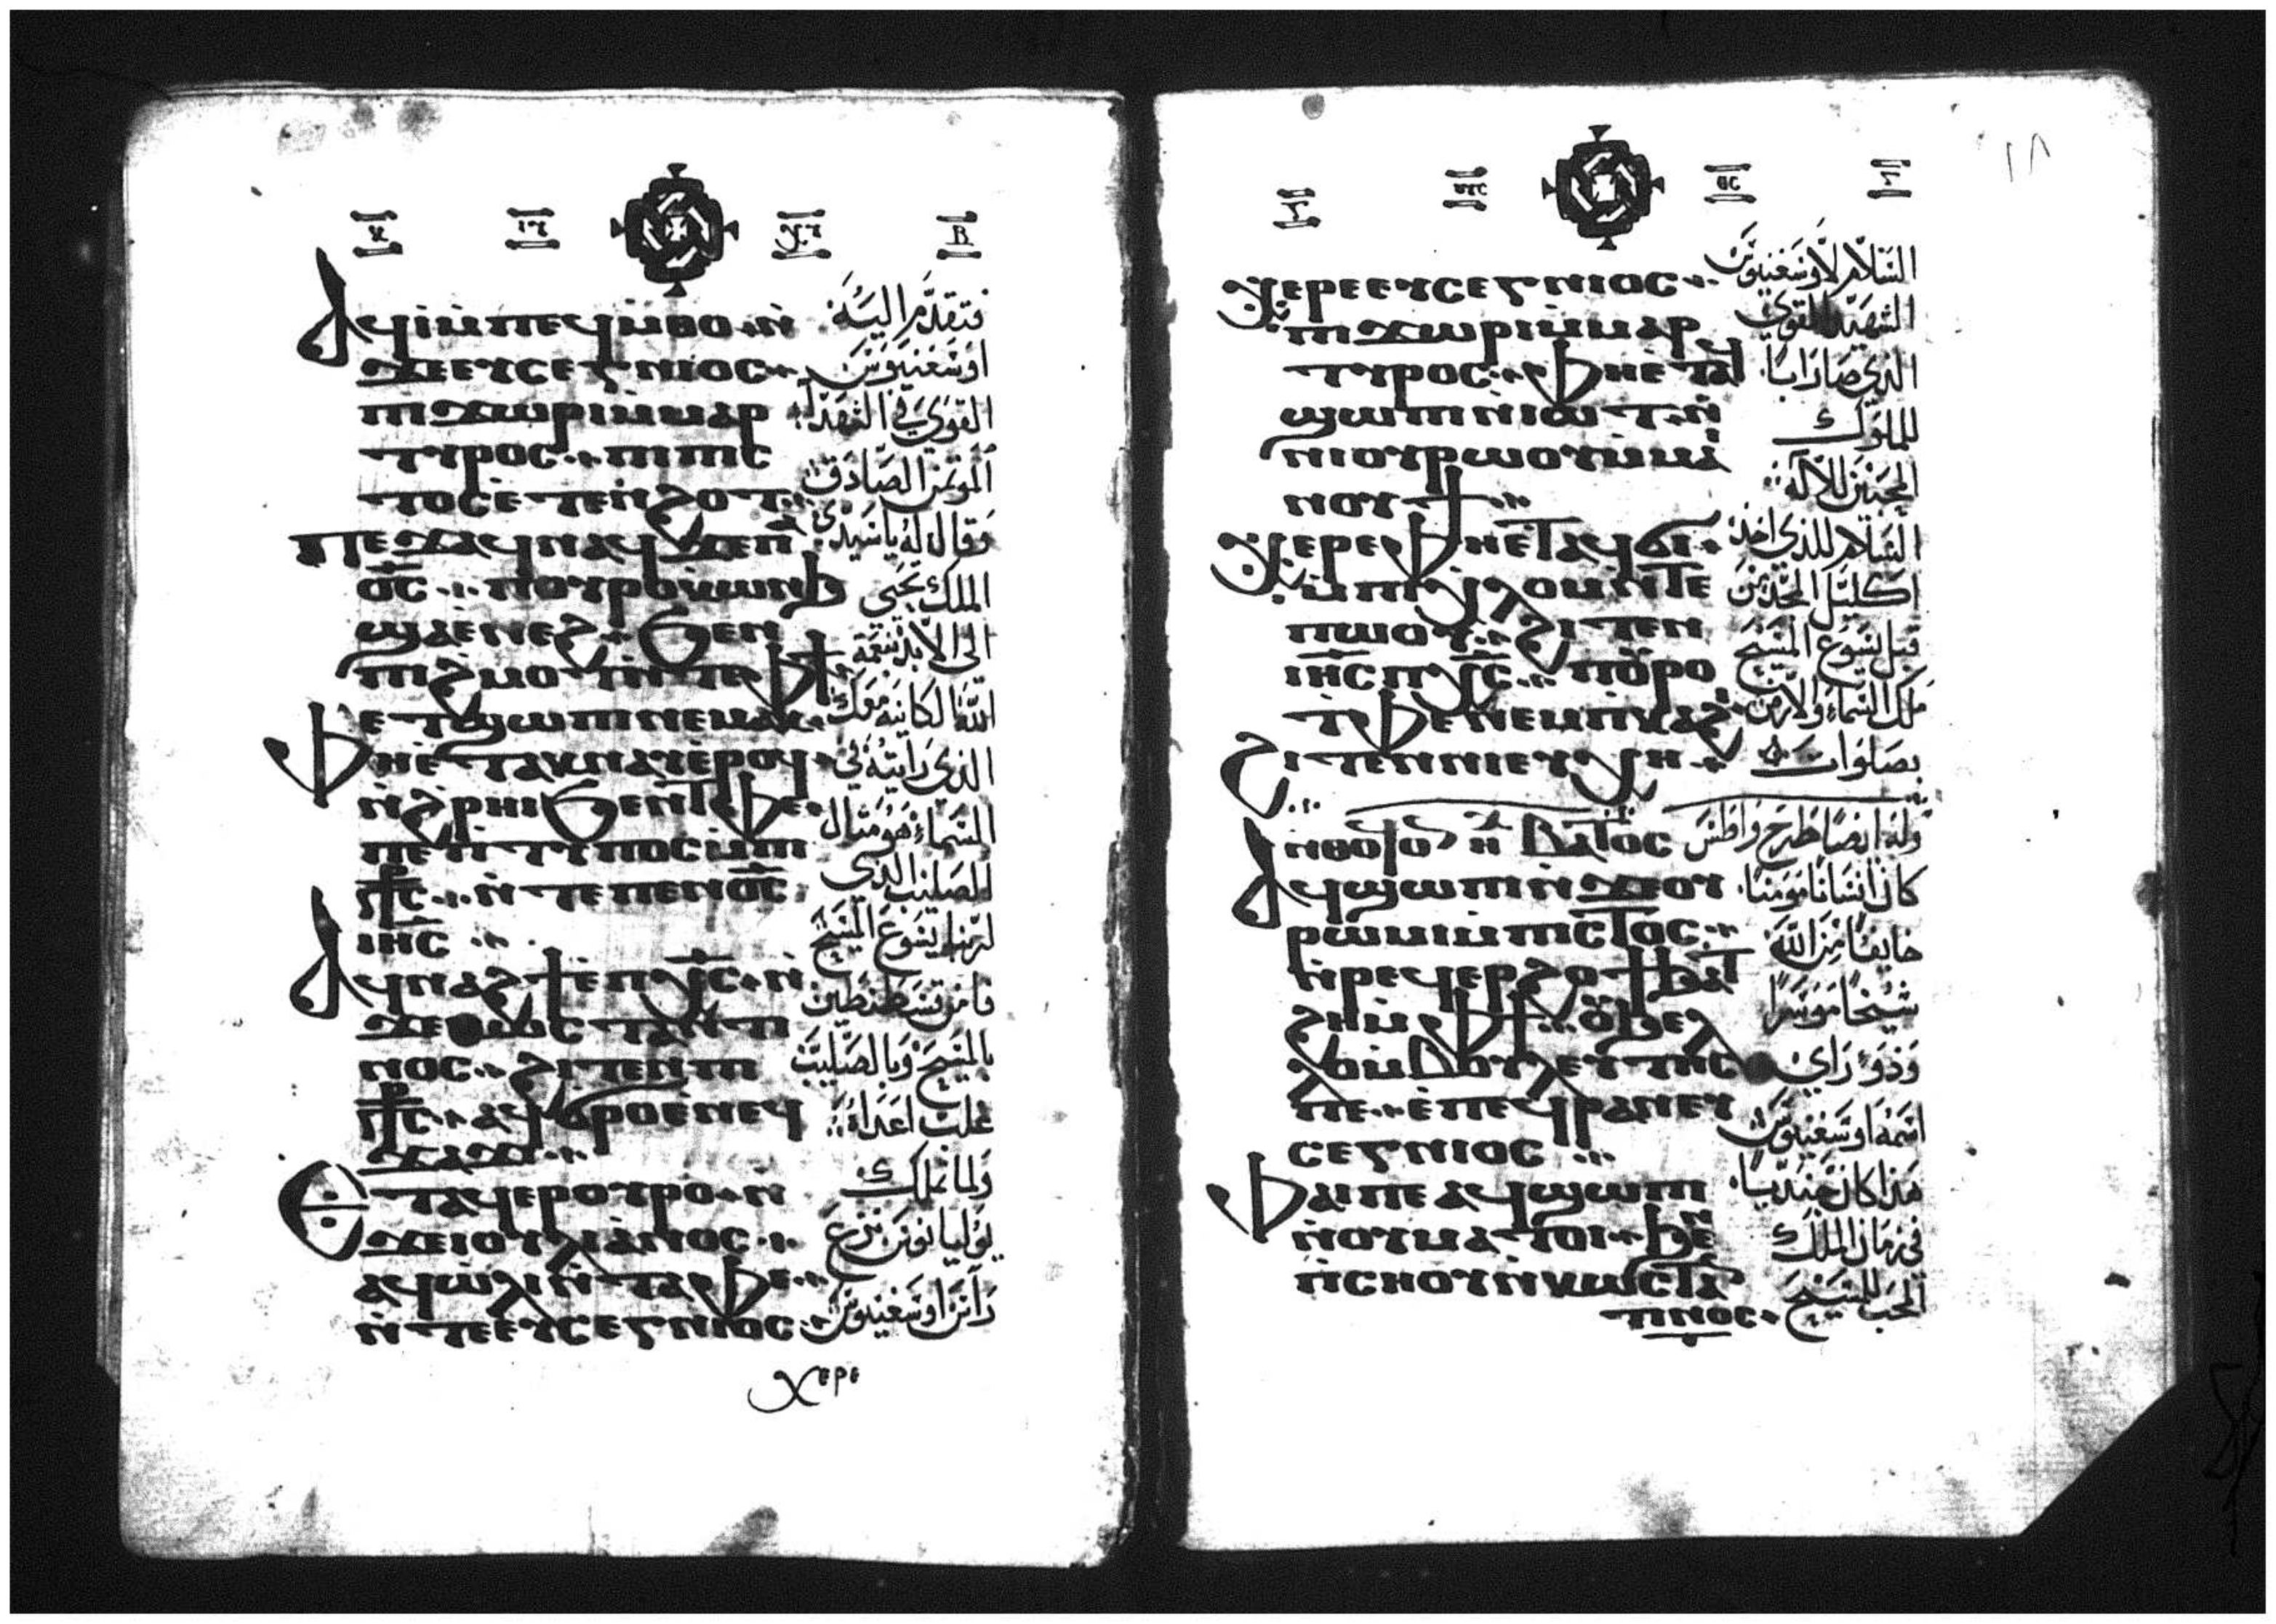 ⲁϥⲓ̀ⲙ̀ⲡⲉϥⲙ̀ⲑⲟ ⲛ̀
ϫⲉⲉⲩⲥⲉⲅⲛⲓⲟⲥ
ⲡⲓϫⲱⲣⲓⲙ̀ⲙⲁⲣ
ⲧⲩⲣⲟⲥ ⲡⲓⲡⲓⲥ
ⲧⲟⲥⲉⲧⲉⲛϩⲟⲧ
ⲡⲉϫⲁϥⲛⲁϥϫⲉⲡⲁ
ⲟ̅ⲥ̅ ⲡⲟⲩⲣⲟⲕⲱⲛϧ
ϣⲁⲉⲛⲉϩ ϧⲉⲛ
ⲡⲓϩⲙⲟⲧⲛ̀ⲧⲉⲫϯ
ⲉⲧϣⲱⲡⲛⲉⲙⲁⲕ
ⲫⲏⲉ̀ⲧⲁⲕⲛⲁⲩⲉ̀ⲣⲟϥ
ⲛ̀ϩ̀ⲣⲏⲓϧⲉⲛⲧⲫⲉ
ⲡⲉⲡⲧⲩⲡⲟⲥⲙ̀ⲡⲓ
ⲥ̅ⲧ̅ⲥ̅ ⲛ̀ⲧⲉⲡⲉⲛⲟ̅ⲥ̅
ⲓⲏ̅ⲥ̅
ⲁϥⲛⲁϩϯⲉ̀ⲡⲭ̅ⲥ̅ ⲛ̀
ϫⲉⲕⲱⲥⲧⲁⲛⲧⲓ
ⲛⲟⲥ ϩⲓⲧⲉⲛⲡⲓ
ⲥ̅ⲧ̅ⲥ̅ ⲁϥϭⲣⲟⲉ̀ⲛⲉϥ
ϫⲁϫⲓ
ⲉⲧⲁϥⲉⲣⲟⲩⲣⲟ ⲛ̀
ϫⲉⲓⲟⲩⲗⲓⲁⲛⲟⲥ
ⲁϥⲱ̀ⲗⲓⲛ̀ⲧⲁⲫⲉ
ⲛ̀ⲧⲉⲉⲩⲥⲉⲅⲛⲓⲟⲥ
ⲭⲉⲣⲉ
فتقدم اليه
اوسغنيوس
القوي في الشهدا
المؤتمن الصادق
وقال له يا سيدي
الملك تحيي
الي الابد بنعمة
الله الكاينه معك
الذي رايته في
السماء هو مثال
الصليب الذي
لربنا يسوع المسيح
فامن قسطنطين
بالمسيح وبالصليب
غلب اعداه
ولما تملك
يوليانوس نزع
راس اوسغنيوس
١٨
ⲭⲉⲣⲉⲉⲩⲥⲉⲅⲛⲓⲟⲥ
ⲡⲓϫⲱⲣⲓⲙ̀ⲙⲁⲣ
ⲧⲩⲣⲟⲥ ⲫⲏⲉ̀ⲧⲁϥ
ϣⲱⲡⲓⲛ̀ⲓⲱⲧ ⲛ̀
ⲛⲓⲟⲩⲣⲱⲟⲩⲙ̀ⲙⲁⲓ
ⲛⲟⲩϯ
ⲭⲉⲣⲉ ⲫⲏⲉ̀ⲧⲁϥϭⲓ
ⲙ̀ⲡⲓⲭⲗⲟⲙⲛ̀ⲧⲉ
ⲡⲱⲟⲩ ϩⲓⲧⲉⲛ
ⲓⲏ̅ⲥ̅ⲡⲭ̅ⲥ̅ ⲡⲟⲩⲣⲟ
ⲛ̀ⲧⲫⲉⲛⲉⲙⲡⲕⲁϩⲓ
ϩⲓⲧⲉⲛⲛⲓⲉⲩⲭⲏ
ⲛⲑⲟϥⲟⲛ ⲃⲁⲧⲟⲥ
ⲁϥϣⲱⲡⲓⲛ̀ϫⲉⲟⲩ
ⲣⲱⲙⲓⲙ̀ⲡⲓⲥⲧⲟⲥ
ⲛ̀ⲣⲉϥⲉⲣϩⲟϯϧⲁⲧ
ϩⲏⲙ̀ⲫϯ ⲟⲩϧⲉⲗ
ⲗⲟⲙ̀ⲃⲟⲩⲗⲉⲩⲧⲏⲥ
ⲡⲉ ⲉ̀ⲡⲉϥⲣⲁⲛⲉⲩ
ⲥⲉⲅⲛⲓⲟⲥ
ⲫⲁⲓⲡⲉⲁϥϣⲱⲡⲓ
ⲛ̀ⲟⲩⲙⲁⲧⲟⲓ ϧⲉⲛ
ⲛ̀ⲥⲏⲟⲩⲛ̀ⲕⲱⲥⲧⲁ
ⲧⲓⲛⲟⲥ
السلام لاوسغنيوس
الشهيد القوي
الذي صار ابا
للملوك
المحبين للاله
السلام للذي اخذ
اكليل المجد من
قبل يسوع المسيح
ملك السماء والارض
بصلوات
وله ايضا طرح واطس
كان انسانا مومنا
خايفا من الله
شيخا موسرا
وذو راي
اسمه اوسغنيوس
هذا كان جنديا
في زمان الملك
المحب للمسيح